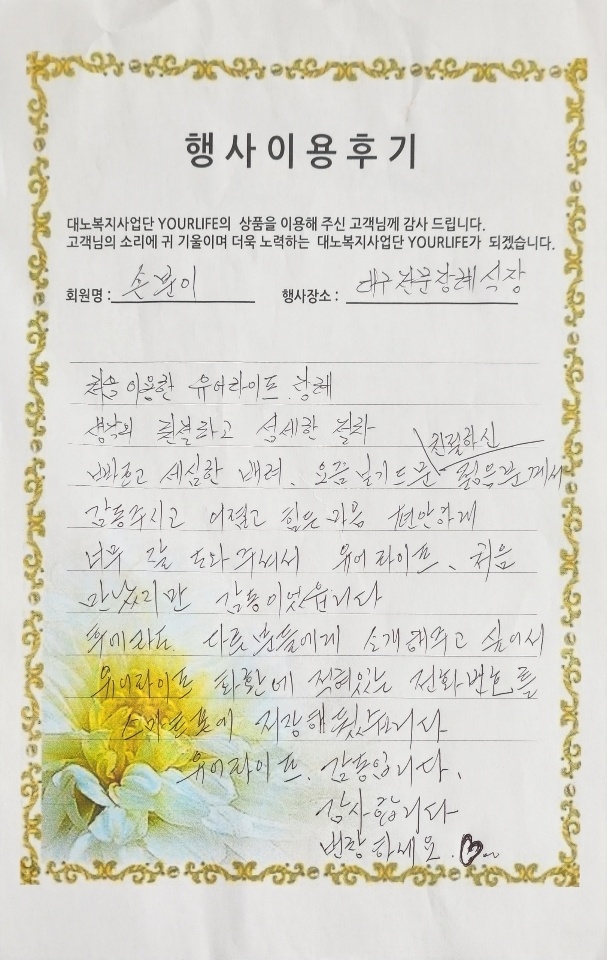 행사이용후기
대노복지사업단 YOURLIFE의 상품을 이용해 주신 고객님께 감사 드립니다.
고객님의 소리에 귀 기울이며 더욱 노력하는 대노복지사업단 YOURLIFE가 되겠습니다.
회원명 : 손분이 행사장소 : 대구전문장례식장
처음 이용한 유어라이프 장례
친절하고 섬세한 절차
친절하신
빠르고 세심한 배려, 요즘 보기드문 젊은분께서
감동주시고 어렵고 힘든 마음 편안하게
너무 잘 도와주셔서 유어라이프, 처음
만났지만 감동이었습니다
후에라도 다른분들에게 소개해주고 싶어서
유어라이프 화환에 적혀있는 전화번호를
스마트폰에 저장해뒀습니다
유어라이프. 감동입니다.
감사합니다
번창하세요.